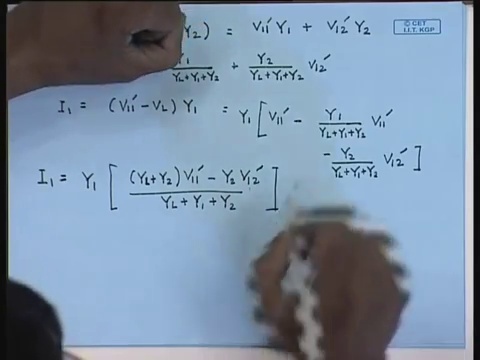 Y₂) = V₁₁′ Y₁ + V₁₂′ Y₂
© CET
I.I.T. KGP
Y₁/(Y_L+Y₁+Y₂) + Y₂/(Y_L+Y₁+Y₂) V₁₂′
I₁ = (V₁₁′ − V_L) Y₁ = Y₁ [ V₁₁′ − Y₁/(Y_L+Y₁+Y₂) V₁₁′
− Y₂/(Y_L+Y₁+Y₂) V₁₂′ ]
I₁ = Y₁ [ ((Y_L+Y₂) V₁₁′ − Y₂ V₁₂′)/(Y_L + Y₁ + Y₂) ]